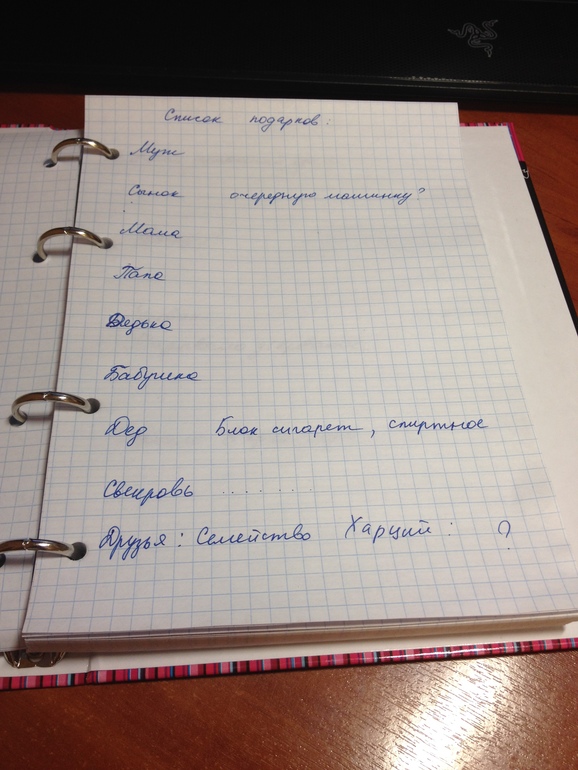 Список подарков:
Муж
Сынок очередную машинку?
Мама
Папа
Дедько
Бабушка
Дед Блок сигарет, спиртное
Свекровь . . . . . .
Друзья: Семейство Харций: ?